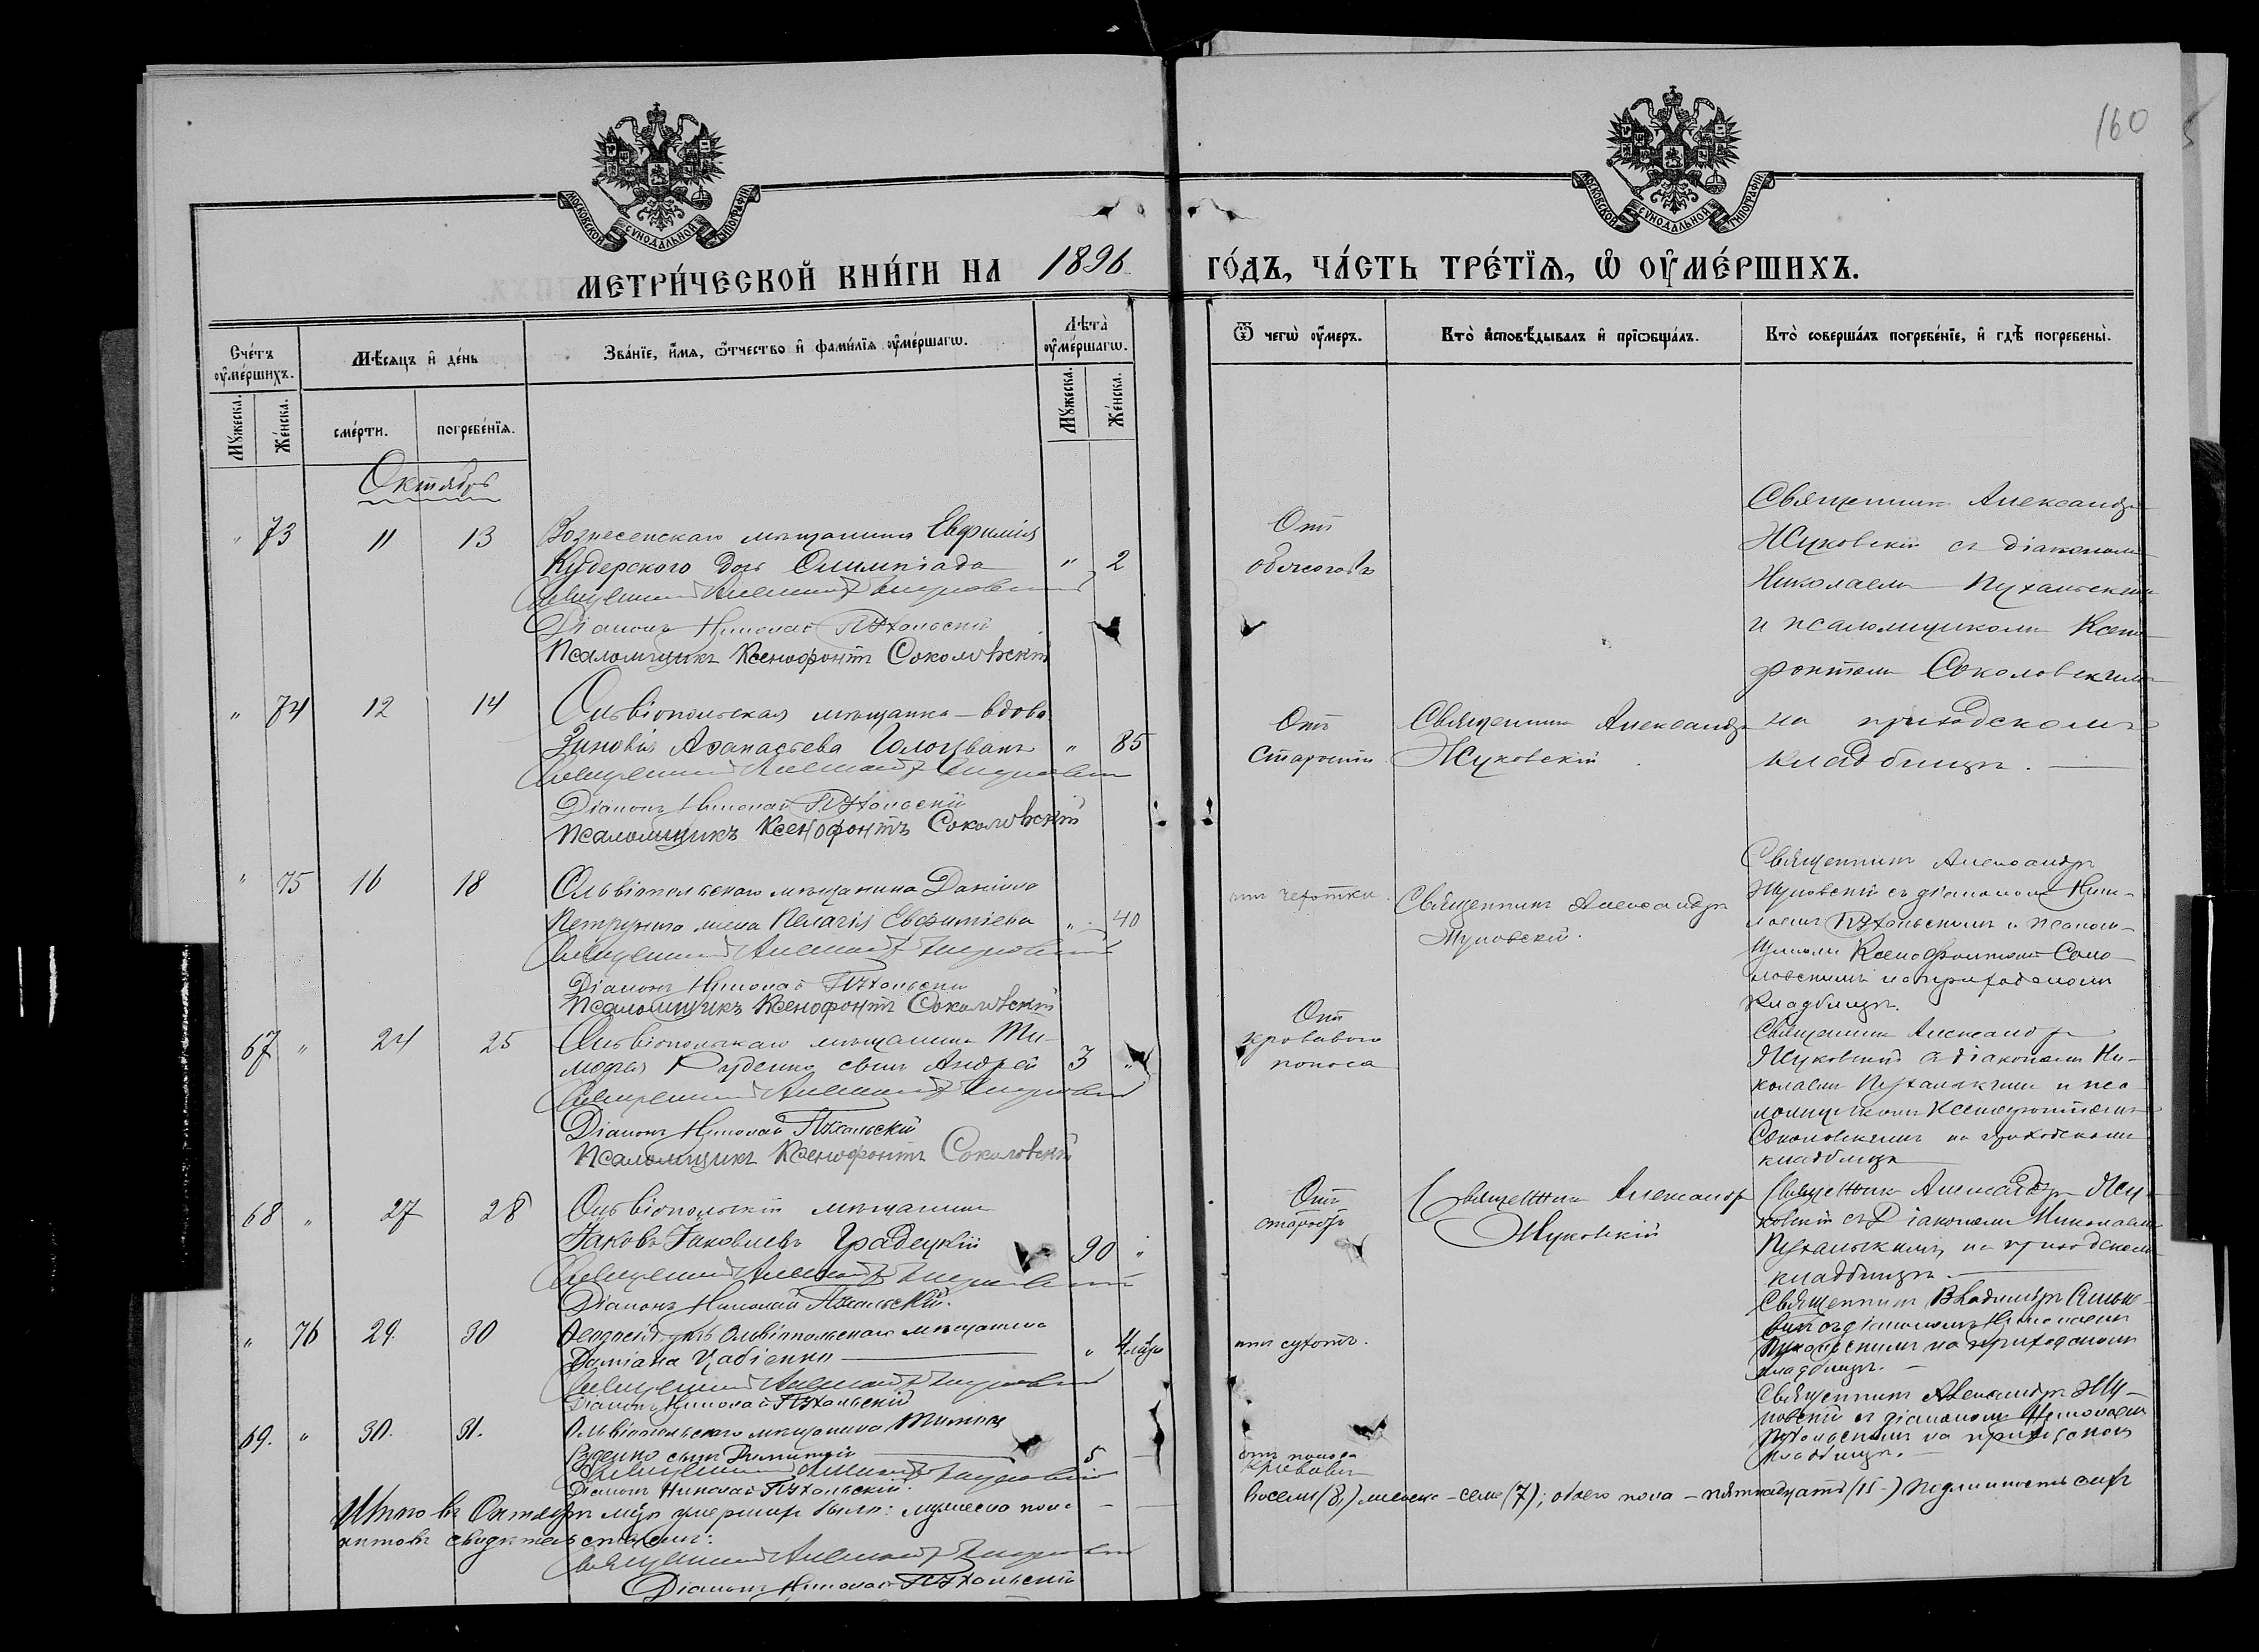 160
МОСКОВСКОЙ СѴНОДАЛЬНОЙ ТИПОГРАФІИ
МОСКОВСКОЙ СѴНОДАЛЬНОЙ ТИПОГРАФІИ
МЕТРИ́ЧЕСКОЙ КНИ́ГИ НА 1896 ГО́ДЪ, ЧА́СТЬ ТРЕ́ТЇѦ, Ѡ҆ ОУ҆МЕ́РШИХЪ.
Сче́тъ оу҆ме́ршихъ.
Мѣ́сяцъ и҆ де́нь
Зва́нїе, и҆́мѧ, ѻ҆́тчество и҆ фами́лїѧ оу҆ме́ршагѡ.
Лѣта̀ оу҆ме́ршагѡ.
Ѿ чегѡ̀ оу҆́меръ.
Кто̀ и҆сповѣ́дывалъ и҆ прїѡбща́лъ.
Кто̀ соверша́лъ погребе́нїе, и҆ гдѣ̀ погребены̀.
Мꙋ́жеска.
Же́нска.
сме́рти.
погребе́нїѧ.
Мꙋ́жеска.
Же́нска.
Октябрь
" 73 11 13 Вознесенскаго мѣщанина Евфимія
Кудерского дочь Олимпіада " 2
Священникъ Александръ Жуковскій
Діаконъ Николай Пухальскій
Псаломщикъ Ксенофонтъ Соколовскій
Отъ
обжоговъ
Священникъ Александръ
Жуковскій съ діакономъ
Николаемъ Пухальскимъ
и псаломщикомъ Ксено-
фонтомъ Соколовскимъ
на приходскомъ
кладбищѣ.
" 74 12 14 Ольвіопольская мѣщанка - вдова
Зиновія Аѳанасьева Голоцванъ " 85
Священникъ Александръ Жуковскій
Діаконъ Николай Пухальскій
Псаломщикъ Ксенофонтъ Соколовскій
Отъ
старости
Священникъ Александръ
Жуковскій
" 75 16 18 Ольвіопольскаго мѣщанина Даніила
жена Пелагія Евфиміева " 40
Священникъ Александръ Жуковскій
Діаконъ Николай Пухальскій
Псаломщикъ Ксенофонтъ Соколовскій
отъ чехотки.
Священникъ Александръ
Жуковскій.
Священникъ Александръ
Жуковскій съ діакономъ Нико-
лаемъ Пухальскимъ и псалом-
щикомъ Ксенофонтомъ Соко-
ловскимъ на приходскомъ
кладбищѣ.
67 " 24 25 Ольвіопольскаго мѣщанина Ти-
мофея Руденко сынъ Андрей 3 "
Священникъ Александръ Жуковскій
Діаконъ Николай Пухальскій
Псаломщикъ Ксенофонтъ Соколовскій
Отъ
кроваваго
поноса
Священникъ Александръ
Жуковскій съ діакономъ Ни-
колаемъ Пухальскимъ и пса-
ломщикомъ Ксенофонтомъ
Соколовскимъ на приходскомъ
кладбищѣ
68 " 27 28 Ольвіопольскій мѣщанинъ
Іаковъ Іаковлевъ Градецкій 90 "
Священникъ Александръ Жуковскій
Діаконъ Николай Пухальскій.
Отъ
старости
Священникъ Александръ
Жуковскій
Священникъ Александръ Жу-
ковскій съ Діакономъ Николаемъ
Пухальскимъ, на приходскомъ
кладбищѣ.
" 76 29. 30 дочь Ольвіопольскаго мѣщанина
Даміана Цабіенко " 4 мѣс
Священникъ Александръ Жуковскій
Діаконъ Николай Пухальскій
отъ сухотъ.
Священникъ Владиміръ
съ діакономъ Николаемъ
Пухальскимъ на приходскомъ
кладбищѣ.
69. " 30. 31. Ольвіопольскаго мѣщанина
сынъ Димитрій 5
Священникъ Александръ Жуковскій
Діаконъ Николай Пухальскій.
отъ поноса
Священникъ Александръ Жу-
ковскій съ діакономъ Николаемъ
Пухальскимъ на приходскомъ
кладбищѣ.
Итого въ Октябрѣ мцѣ умершихъ было: мужеска пола - восемь (8,) женска - семь (7); обоего пола - пятнадцать (15.) Подлинность сихъ
актовъ свидѣтельствуемъ:
Священникъ Александръ Жуковскій
Діаконъ Николай Пухальскій